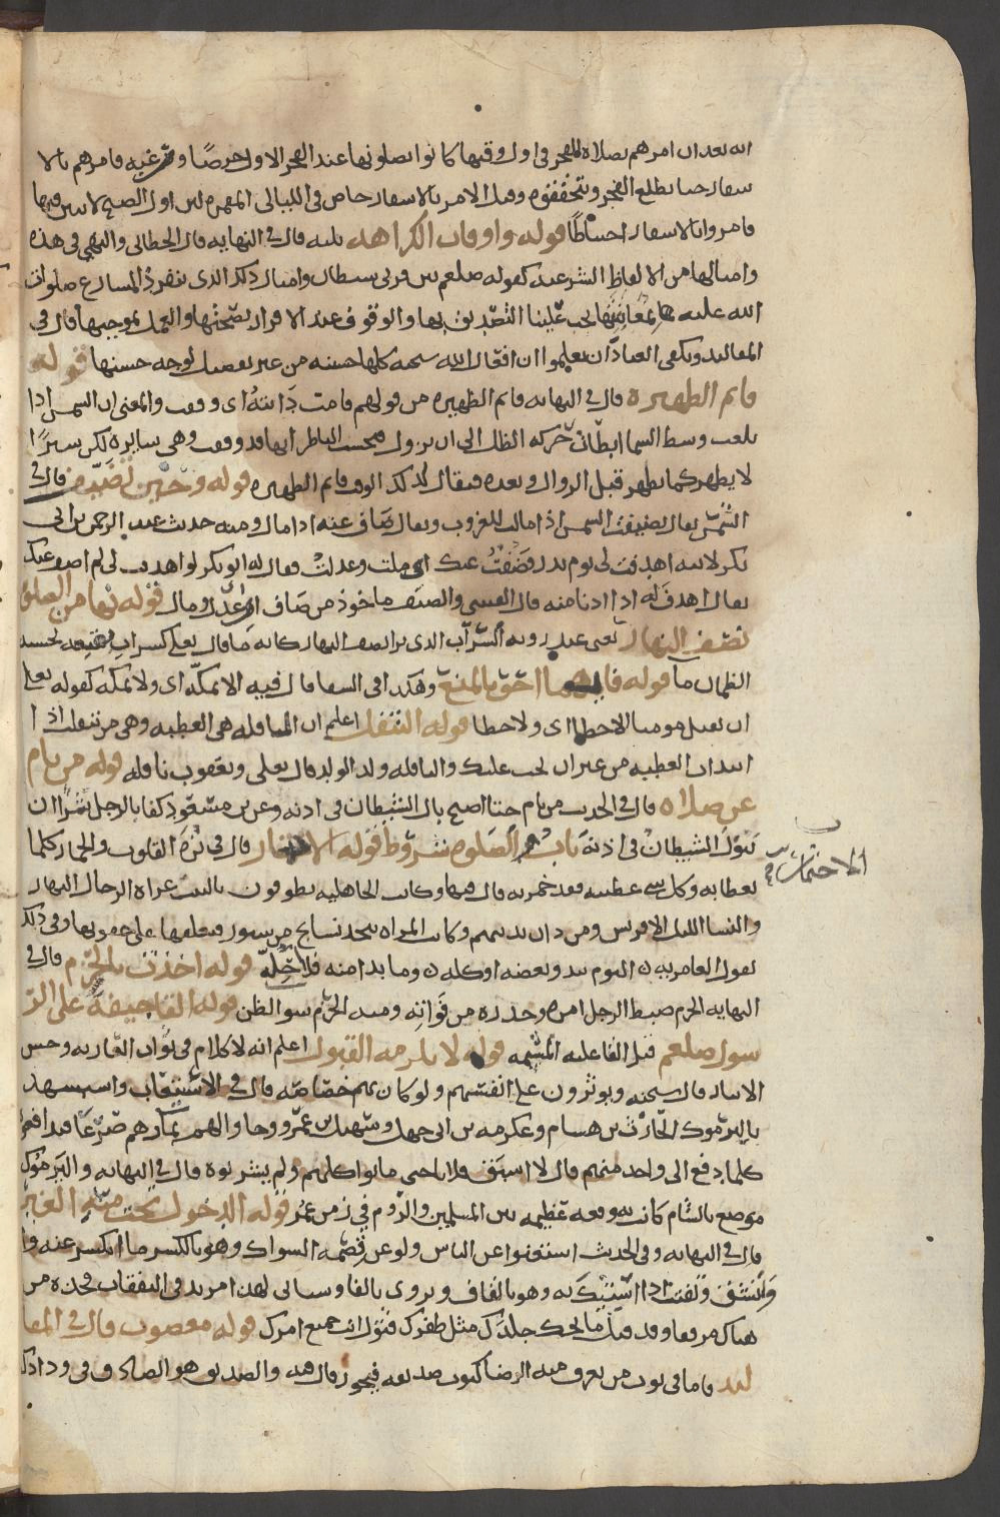 انه بعد ان امرهم بصلاة الفجر في اول وقتها كانوا يصلونها عند الفجر الاول حرصا ورغبة فامرهم بالا
سفار حتا يطلع الفجر ويتحققوه وقيل الامر بالاسفار خاص في الليالي المقمره لان اول الصبح لا يتبين فيها
فامروا بالاسفار احتياطا قوله واوقات الكراهه ثلثه قال في النهايه قال الخطابي والنهي في هذه
وامثالها من الالفاظ الشرعيه كقوله صلعم بين قرني شيطان وامثال ذلك الذي ينفرد الشارع صلوات
الله عليه بمعانيها يجب علينا التصديق بها والوقوف عند الاقرار بصحتها والعمل بموجبها قال في
المقاليد ويكفي العباد ان يعلموا ان افعال الله سبحنه كلها حسنه من غير تفصيل لوجه حسنها قوله
قائم الظهيره قال في النهايه قائم الظهيره من قولهم قامت دابته اي وقفت والمعنى ان الشمس اذا
بلغت وسط السما ابطات حركه الظل الى ان تزول فيحسب الناظر انها قد وقفت وهي سايره لكن سيرا
لا يظهر كما يظهر قبل الزوال وبعده فيقال لذلك الوقت قائم الظهيره قوله وحين تضيف قال في
الشمس يقال تضيفت الشمس اذا مالت للغروب ويقال ضاف عنه اذا مال ومنه حديث عبد الرحمن بن ابي
بكر لابيه اهدفت لي يوم بدر فضفت عنك اي ملت وعدلت فقال له ابو بكر لو اهدفت لي لم اضف عنك
يقال اهدف له اذا دنا منه قال العنسي والضيف ماخوذ من ضاف اي عدل ومال قوله نهاهن العلق
نصف النهار يعني عند رويه السراب الذي يرا نصف النهار كانه ما قال تعلى كسراب بقيعة يحسبه
الظمان ما قوله فايهما احق بالمنع وهكذا في الشفا قال فيه الا بمكة اي ولا بمكه كقوله تعلى
ان يقتل مومنا الا خطا اي ولا خطا قوله التنفل اعلم ان النافله هي العطيه وهي من تنفلت اذا
ابتدات العطيه من غير ان تجب عليك والنافله ولد الولد قال تعلى ويعقوب نافله قوله من نام
عن صلاة قال في الحديث من نام حتا اصبح بال الشيطان في اذنه وعن بن مسعود كفا بالرجل شرا ان
يبول الشيطان في اذنه باب الصلوه شروط قوله الاختمار قال في نزه القلوب والخمار كلما
يغطا به وكل شي غطيته فقد خمرته قال فيها وكانت الجاهليه يطوفون بالبيت عراة الرجال النهار
والنسا الليل الا قريش ومن دان بدينهم وكانت المراه تتخذ نسايج من سيور فتعلقها على حقويها وفي ذلك
تقول العامريه اليوم يبدو بعضه او كله وما بدا منه فلا احله قوله اخذت بالحزم قال في
النهايه الحزم ضبط الرجل امره وحذره من فواته ومنه الحزم سو الظن قوله القا جيفة على الر
سول صلعم قيل القا عليه المشيمه قوله لا يلزمه القبول اعلم انه لا كلام في ثواب العاريه وحسن
الايثار قال سبحنه ويوثرون على انفسهم ولو كان بهم خصاصه قال في الاستيعاب واستشهد
باليرموك الحارث بن هشام وعكرمه بن ابي جهل وسهيل بن عمرو وجاوا اليهم بما وهم صرعا فتدافعوه
كلما دفع الى واحد منهم قال لا اسبق فلانا حتى ماتوا كلهم ولم يشربوه قال في النهايه واليرموك
موضع بالشام كانت به وقعه عظيمه بين المسلمين والروم في زمن عمر قوله الدخول تحت منة الغير
قال في النهايه وفي الحديث استغنوا عن الناس ولو عن قصمه السواك وهو بالكسر ما انكسر عنه وا
وانشق وتفتت اذا استيك به وهو بالقاف ويروى بالفا وسياتي لهذا مزيد في النفقات
هناك مرفوعا وقد قيل ما يحك جلدك مثل ظفرك فتول انت جميع امرك قوله مغصوب قال في المقا
ليد فاما في ثوب من يعرف منه الرضا كثوب صديقه فيجوز قال فيه والصديق هو الصادق في ودادك
الاختمار